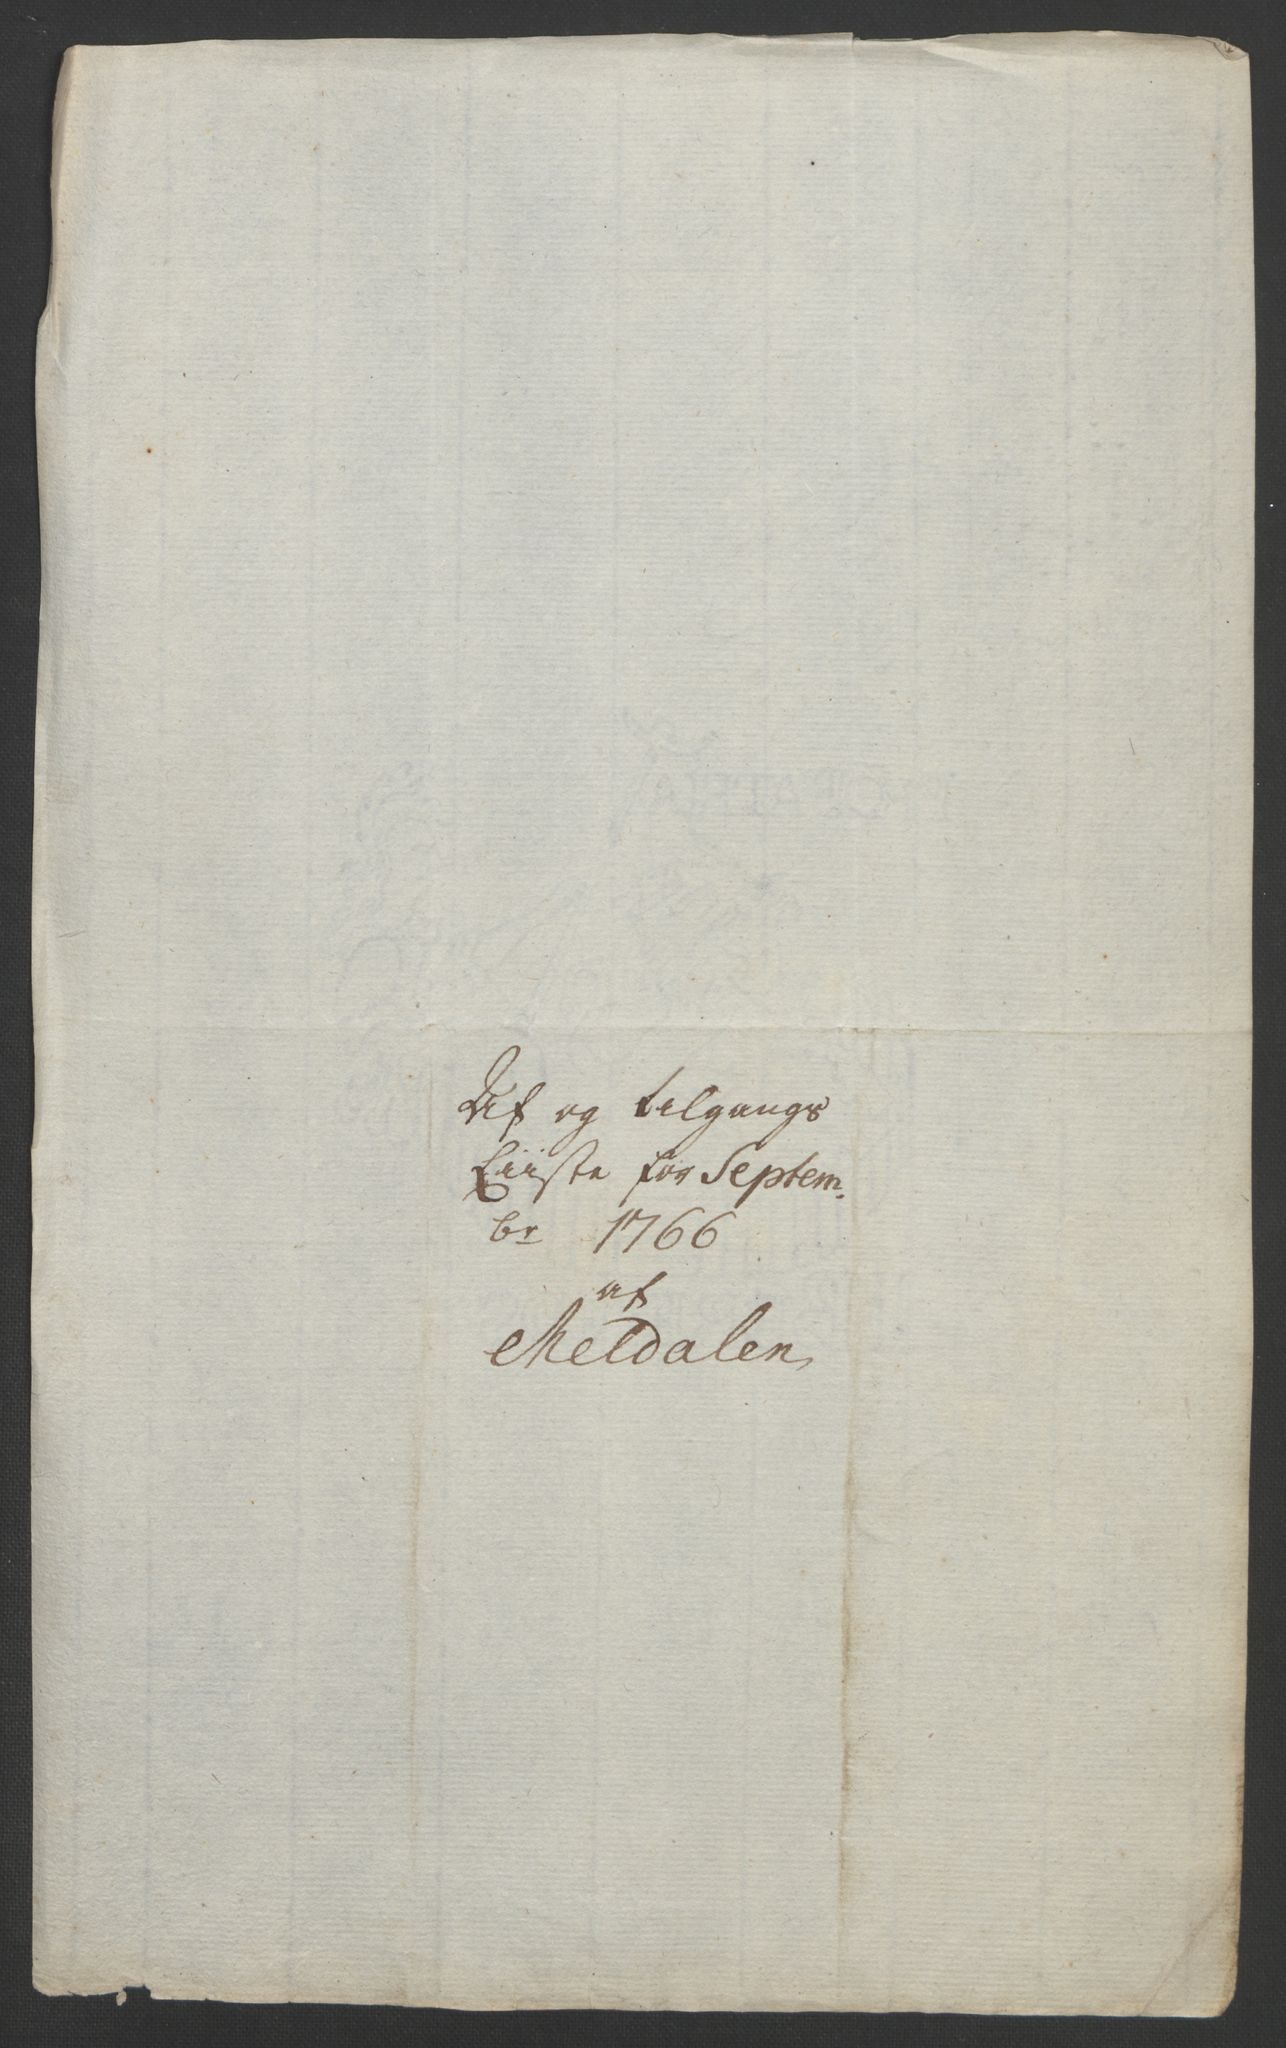 Af og tilgangs
Liiste for Septem-
br 1766
af
Meldalen